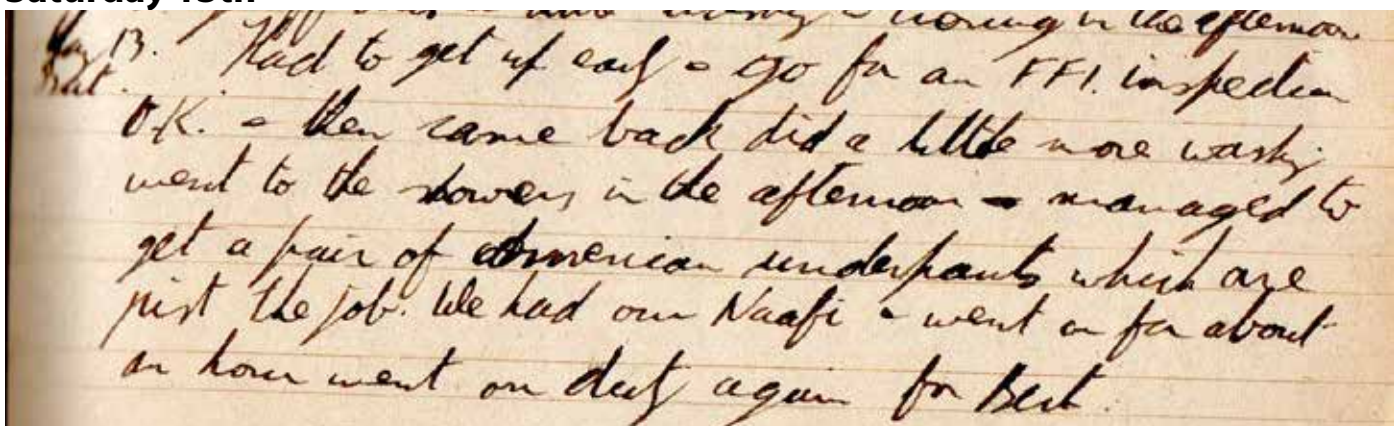 Saturday 13th
washing & ironing in the afternoon
May 13. Had to get up early & go for an FFI. inspection
Sat. O.K. & then came back did a little more washing
went to the showers in the afternoon & managed to
get a pair of American underpants which are
just the job. We had our Naafi & went on for about
an hour went on duty again for Bert.